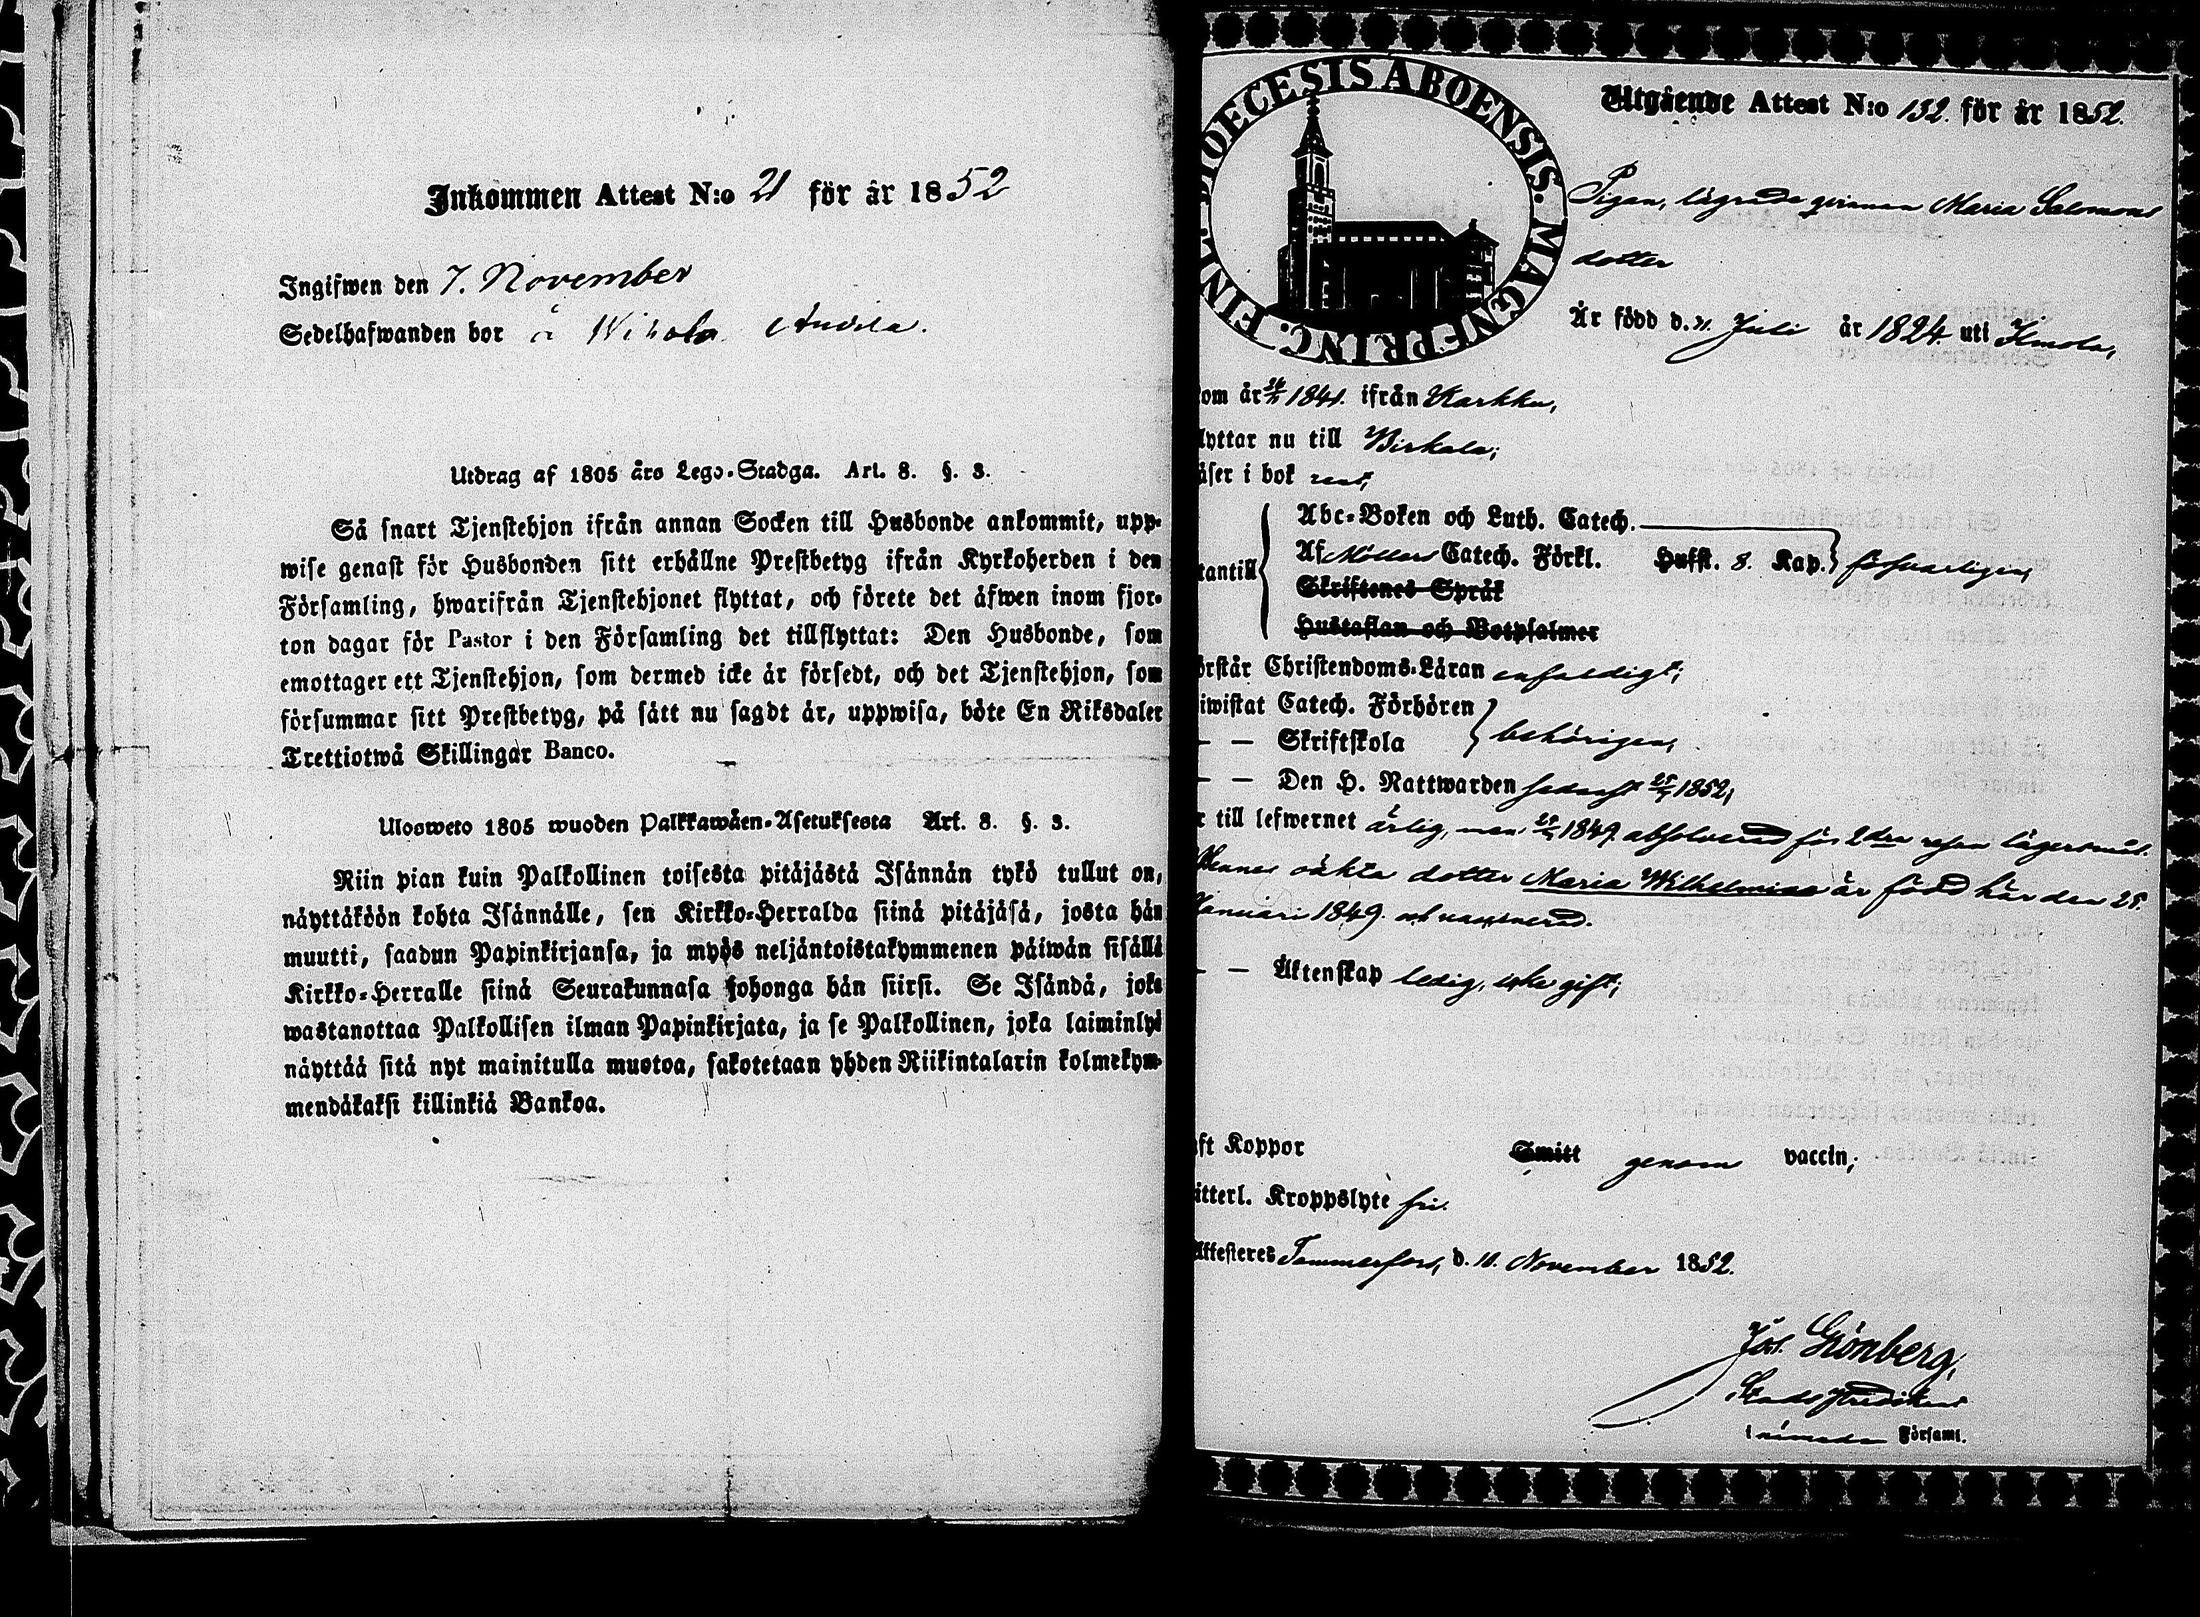 Inkommen Attest N:o 21 för år 1852
Ingifwen den 7. November
Sedelhafwanden bor å
Utdrag af 1805 års Lego-Stadga. Art. 8. §. 3.
Så snart Tjenstehjon ifrån annan Socken till Husbonde ankommit, upp-
wise genast för Husbonden sitt erhållne Prestbetyg ifrån Kyrkoherden i den
Församling, hwarifrån Tjenstehjonet flyttat, och förete det äfwen inom fjor-
ton dagar för Pastor i den Församling det tillflyttat: Den Husbonde, som
emottager ett Tjenstehjon, som dermed icke är försedt, och det Tjenstehjon, som
försummar sitt Prestbetyg, på sätt nu sagdt är, uppwisa, böte En Riksdaler
Trettiotwå Skillingar Banco.
Ulosweto 1805 wuoden Palkkawäen-Asetuksesta Art. 8. §. 3.
Niin pian kuin Palkollinen toisesta pitäjästä Isännän tykö tullut on,
näyttäköön kohta Isännälle, sen Kirkko-Herralda siinä pitäjäsä, josta hän
muutti, saadun Papinkirjansa, ja myös neljäntoistakymmenen päiwän sisällä
Kirkko-Herralle siinä Seurakunnasa johonga hän siirsi. Se Isändä, joka
wastanottaa Palkollisen ilman Papinkirjata, ja se Palkollinen, joka laiminlyö
näyttää sitä nyt mainitulla muotoa, sakotetaan yhden Riikintalarin kolmekym-
mendäkaksi killinkiä Bankoa.
DIOECESIS ABOENSIS. MAGNI PRINC. FINL.
Utgående Attest N:o 132. för år 1852.
Pigan, lägrade qvinnan Maria Salomons
dotter
Är född d. 21. Juli år 1824. uti Ilmola,
om år 1841. ifrån Karkku,
lyttar nu till Birkala;
äser i bok rent,
Abc-Boken och Luth. Catech.
tantill Af Möllers Catech. Förkl. Hufst. 8. Kap. försvarligen,
Skriftenes Språk
Hustaflan och Botpsalmer
örstår Christendoms-Läran enfaldigt;
iwistat Catech. Förhören
— — Skriftskola behörigen,
— — Den H. Nattwarden sednast 1852;
r till lefwernet ärlig, men 1849 absolverad för 2dra resan lägersmål.
Hennes oäkta dotter Maria Wilhelmina är född här den 25.
Januari 1849. och vaccinerad.
— — Äktenskap ledig, icke gift;
ft Koppor Smitt genom vaccin;
itterl. Kroppslyte fri.
Attesteres Tammerfors, d. 10. November 1852.
Jos. Grönberg,
Stads predikant
i nämnda Församl.